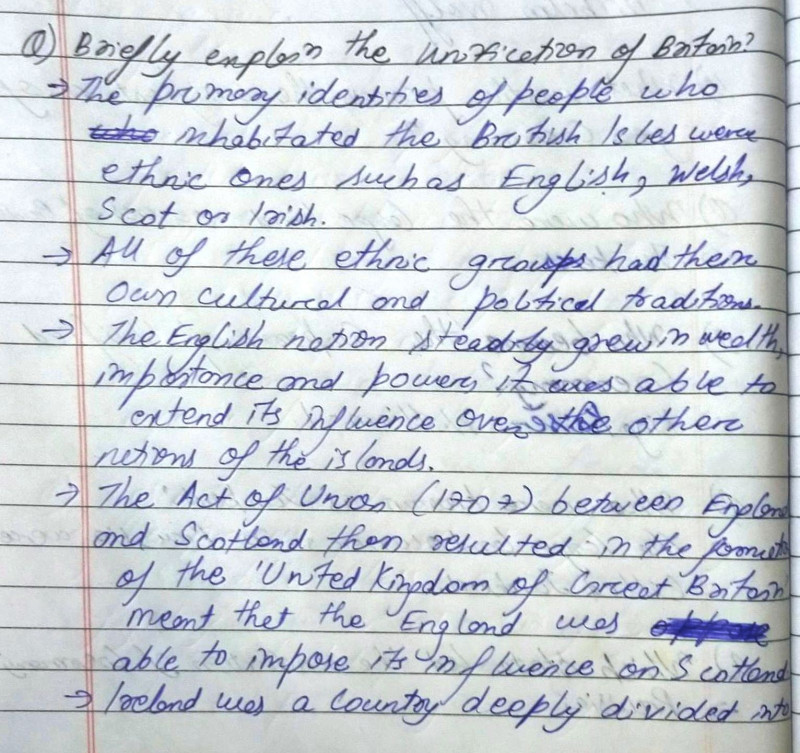 Q) Briefly explain the unification of Britain?
→ The primary identities of people who
inhabitated the British Isles were
ethnic ones such as English, Welsh,
Scot or Irish.
→ All of these ethnic groups had their
own cultural and political traditions.
→ The English nation steadily grew in wealth,
importance and power, it was able to
extend its influence over the other
nations of the islands.
→ The Act of Union (1707) between England
and Scotland than resulted in the format
of the 'United Kingdom of Great Britain'
meant that the England was
able to impose its influence on Scotland
→ Ireland was a country deeply divided into